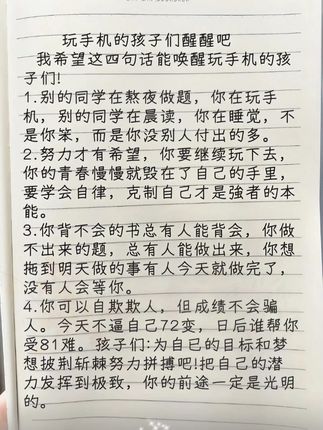 玩手机的孩子们醒醒吧
我希望这四句话能唤醒玩手机的孩
子们!
1.别的同学在熬夜做题，你在玩手
机，别的同学在晨读，你在睡觉，不
是你笨，而是你没别人付出的多。
2.努力才有希望，你要继续玩下去，
你的青春慢慢就毁在了自己的手里，
要学会自律，克制自己才是強者的本
能。
3.你背不会的书总有人能背会，你做
不出来的题，总有人能做出来，你想
拖到明天做的事有人今天就做完了，
没有人会等你。
4.你可以自欺欺人，但成绩不会骗
人。今天不逼自己72变，日后谁帮你
受81难。孩子们:为自已的目标和梦
想披荆斩棘努力拼搏吧!把自己的潜
力发挥到极致，你的前途一定是光明
的。